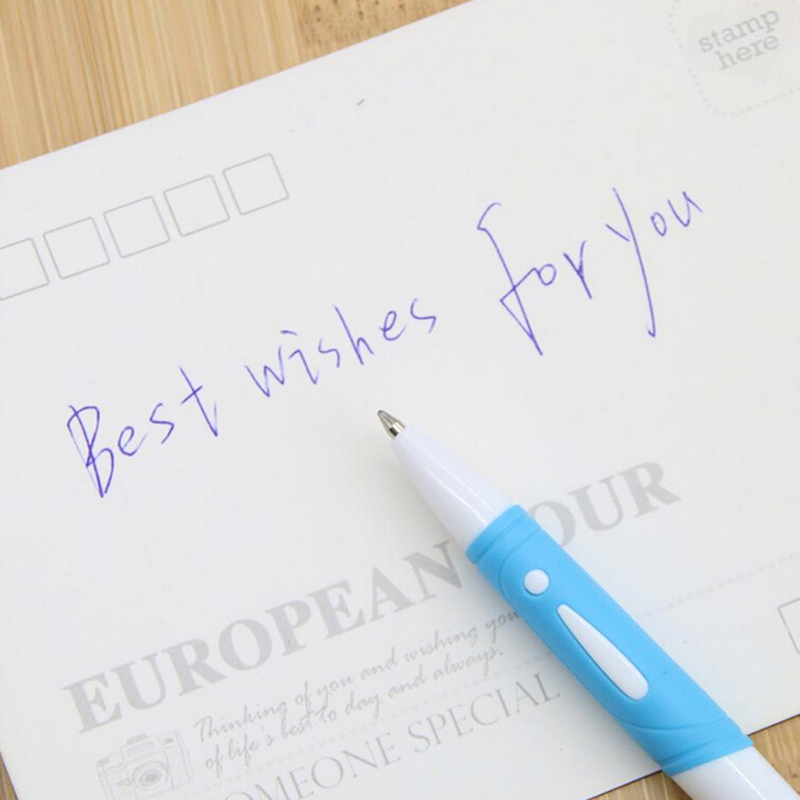 stamp
here
Best wishes for you
EUROPEAN OUR
Thinking of you and wishing you
of life's best to day and always.
OMEONE SPECIAL